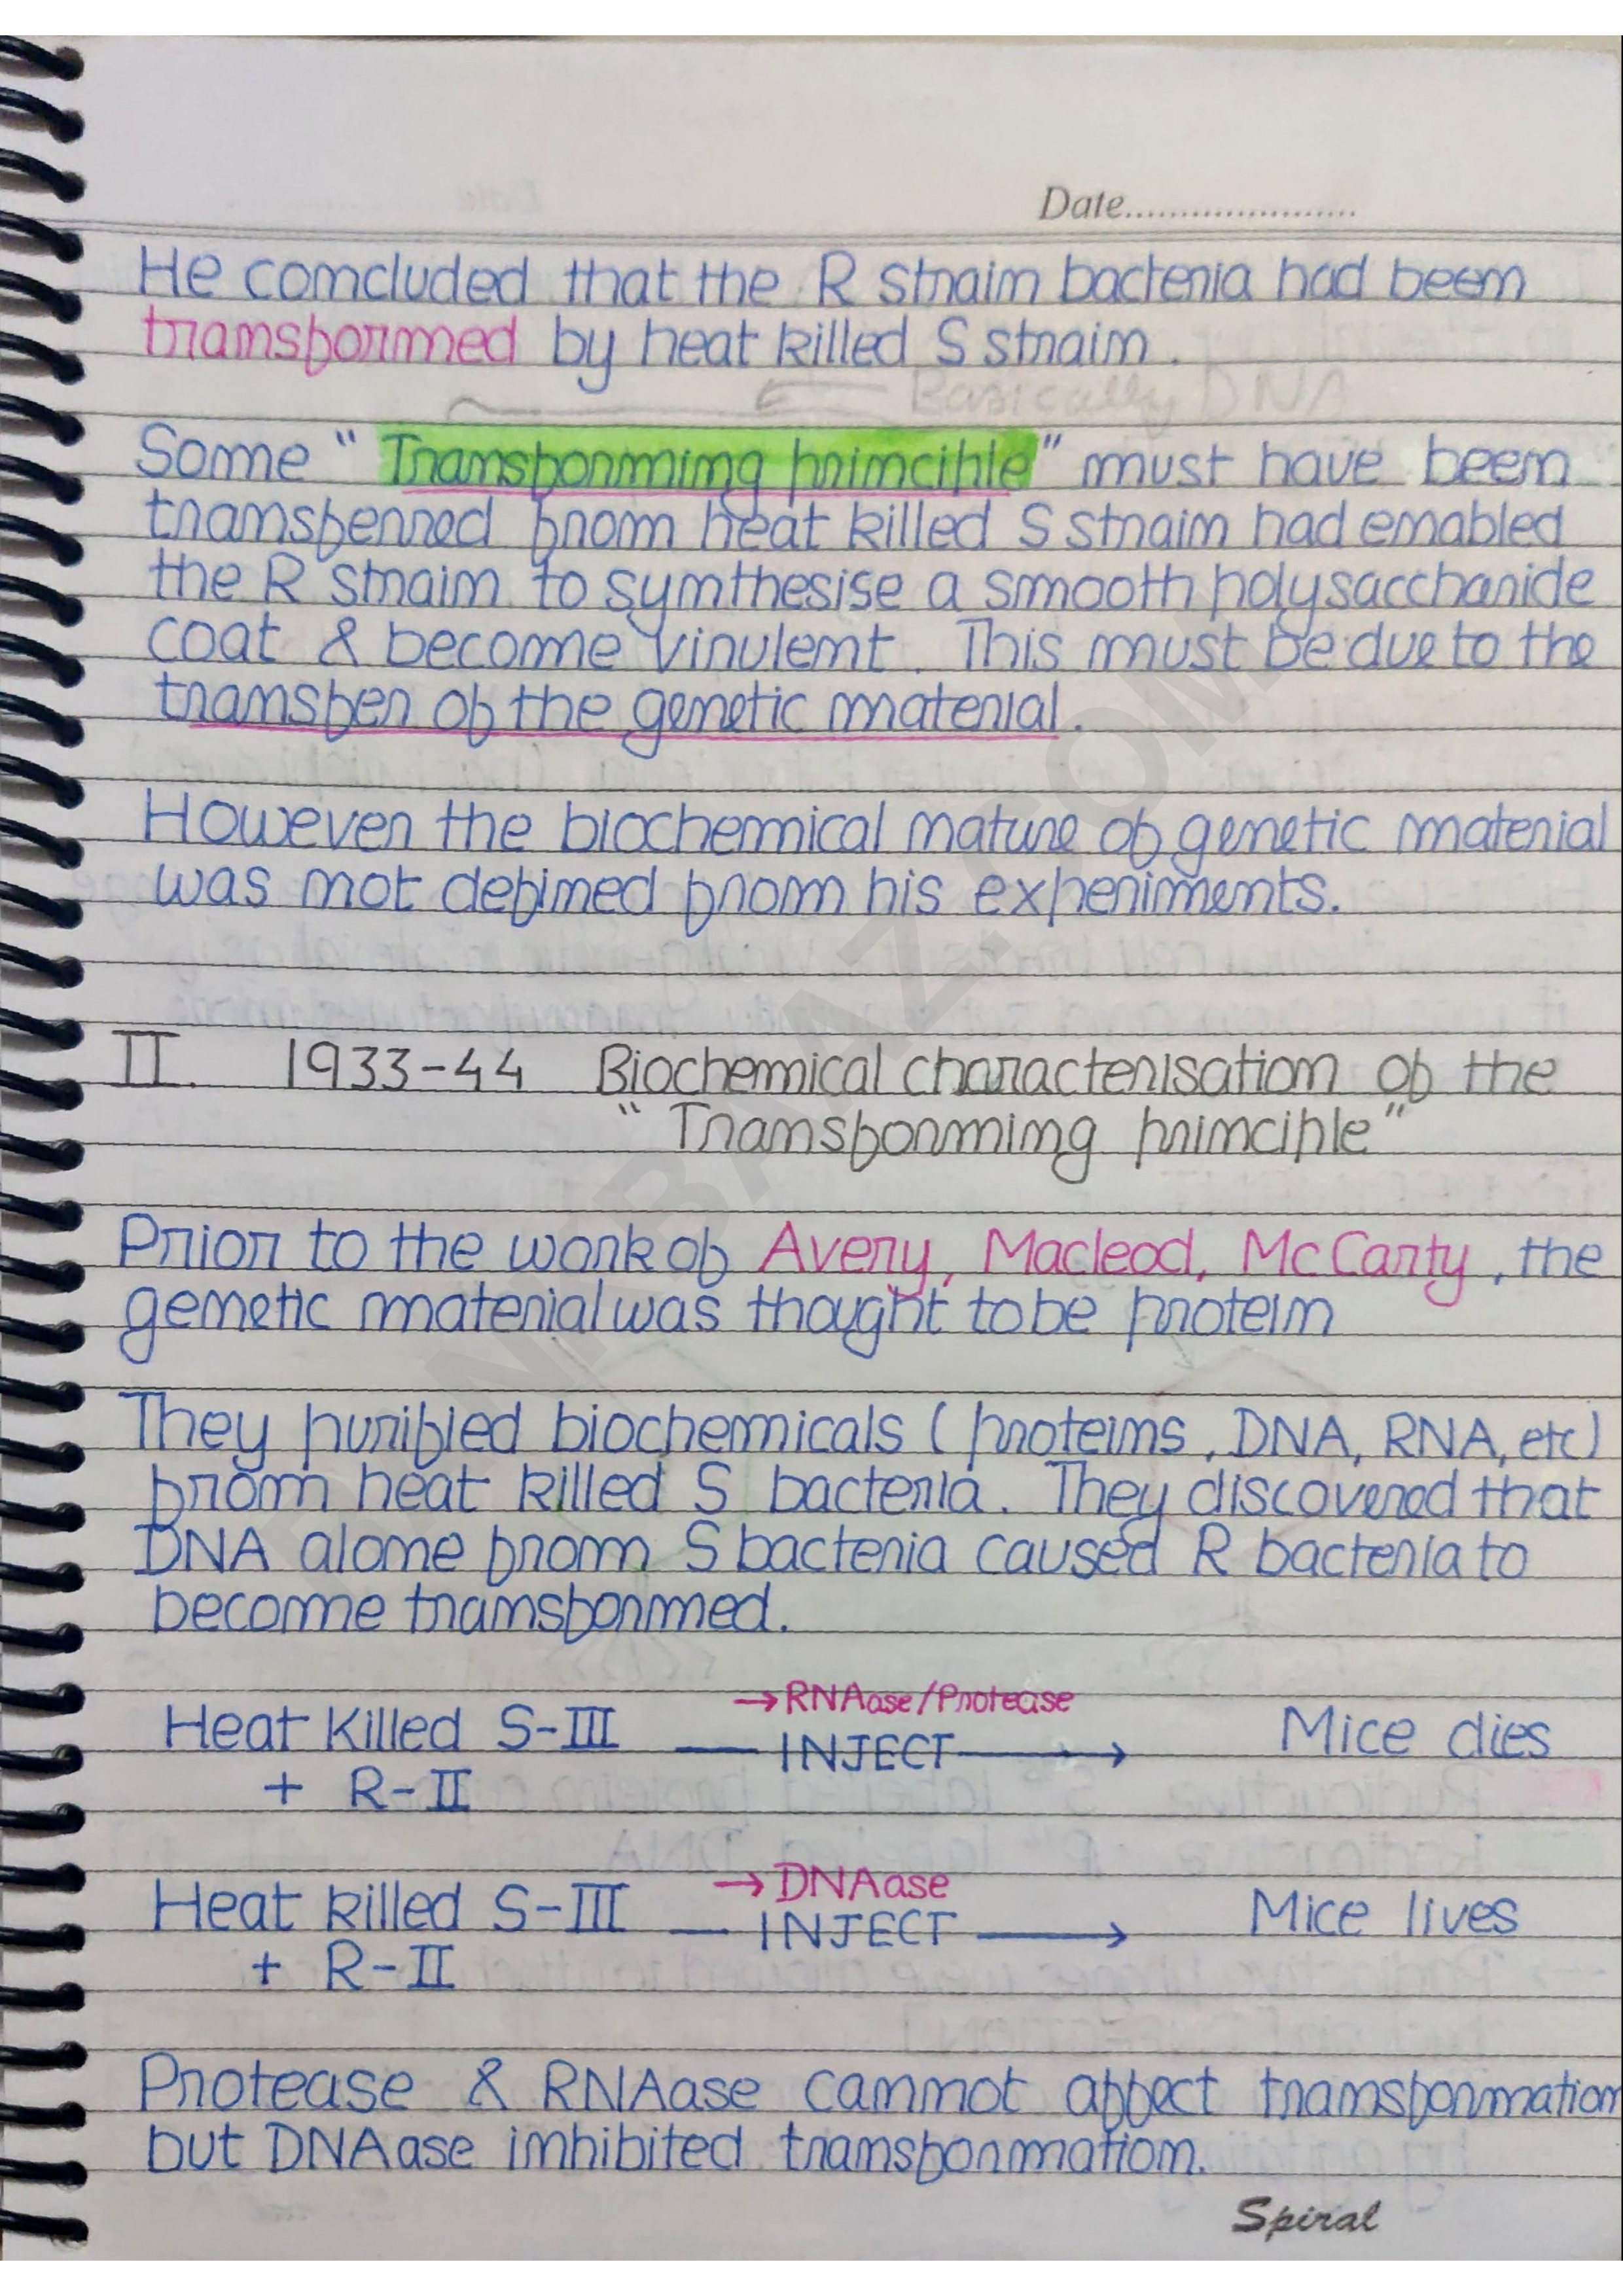 Date.....................
He concluded that the R strain bacteria had been
transformed by heat killed S strain.
Basically DNA
Some "Transforming principle" must have been
transferred from heat killed S strain had enabled
the R strain to synthesise a smooth polysaccharide
coat & become virulent. This must be due to the
transfer of the genetic material.
However the biochemical nature of genetic material
was not defined from his experiments.
II. 1933-44 Biochemical characterisation of the
"Transforming principle"
Prior to the work of Avery, Macleod, McCarty, the
genetic material was thought to be protein
They purified biochemicals (proteins, DNA, RNA, etc)
from heat killed S bacteria. They discovered that
DNA alone from S bacteria caused R bacteria to
become transformed.
→ RNAase/Protease
Heat Killed S-III — INJECT → Mice dies
+ R-II
→ DNAase
Heat killed S-III — INJECT → Mice lives
+ R-II
Protease & RNAase cannot affect transformation
but DNAase inhibited transformation.
Spiral